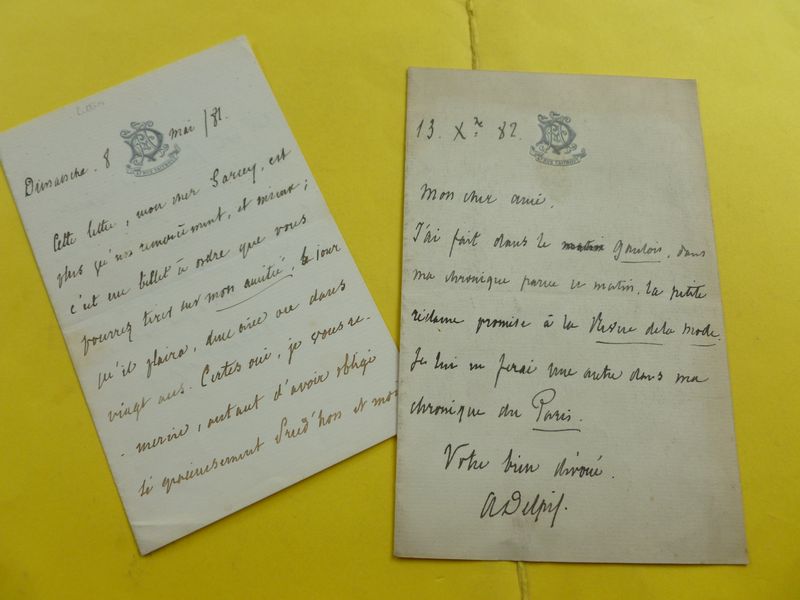 Dimanche. 8 mai /81.
Cette lettre, mon cher Sarcey, est
plus qu'un remerciment, et mieux;
c'est un billet à ordre que vous
pourrez tirer sur mon amitié, le jour
qu'il plaira, dans
vingt ans. Certes oui, je vous re-
mercie, autant d'avoir obligé
si gracieusement Prud'hon et moi
13. Xbre 82.
Mon cher ami,
J'ai fait dans le matin gaulois, dans
ma chronique parue ce matin, la petite
réclame promise à la Revue de la Mode.
Je lui en ferai une autre dans ma
chronique du Paris.
Votre bien dévoué.
ADelpit.